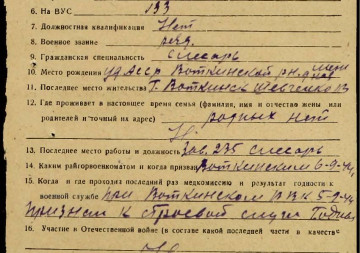 6. На ВУС 133
7. Должностная квалификация Нет
8. Военное звание ряд.
9. Гражданская специальность слесарь
10. Место рождения УдАССР Воткинской р-н
11. Последнее место жительства г. Воткинск Шевченко
12. Где проживает в настоящее время семья (фамилия, имя и отчество жены или
родителей и точный их адрес) родных нет
13. Последнее место работы и должность Зав. 235 слесарь
14. Каким райгорвоенкоматом и когда призван Воткинским 6-9-42
15. Когда и где проходил последний раз медкомиссию и результат годности к
военной службе при Воткинском РВК 5-9-42
признан к строевой службе годным
16. Участие в Отечественной войне (в составе какой последней части и в качест-